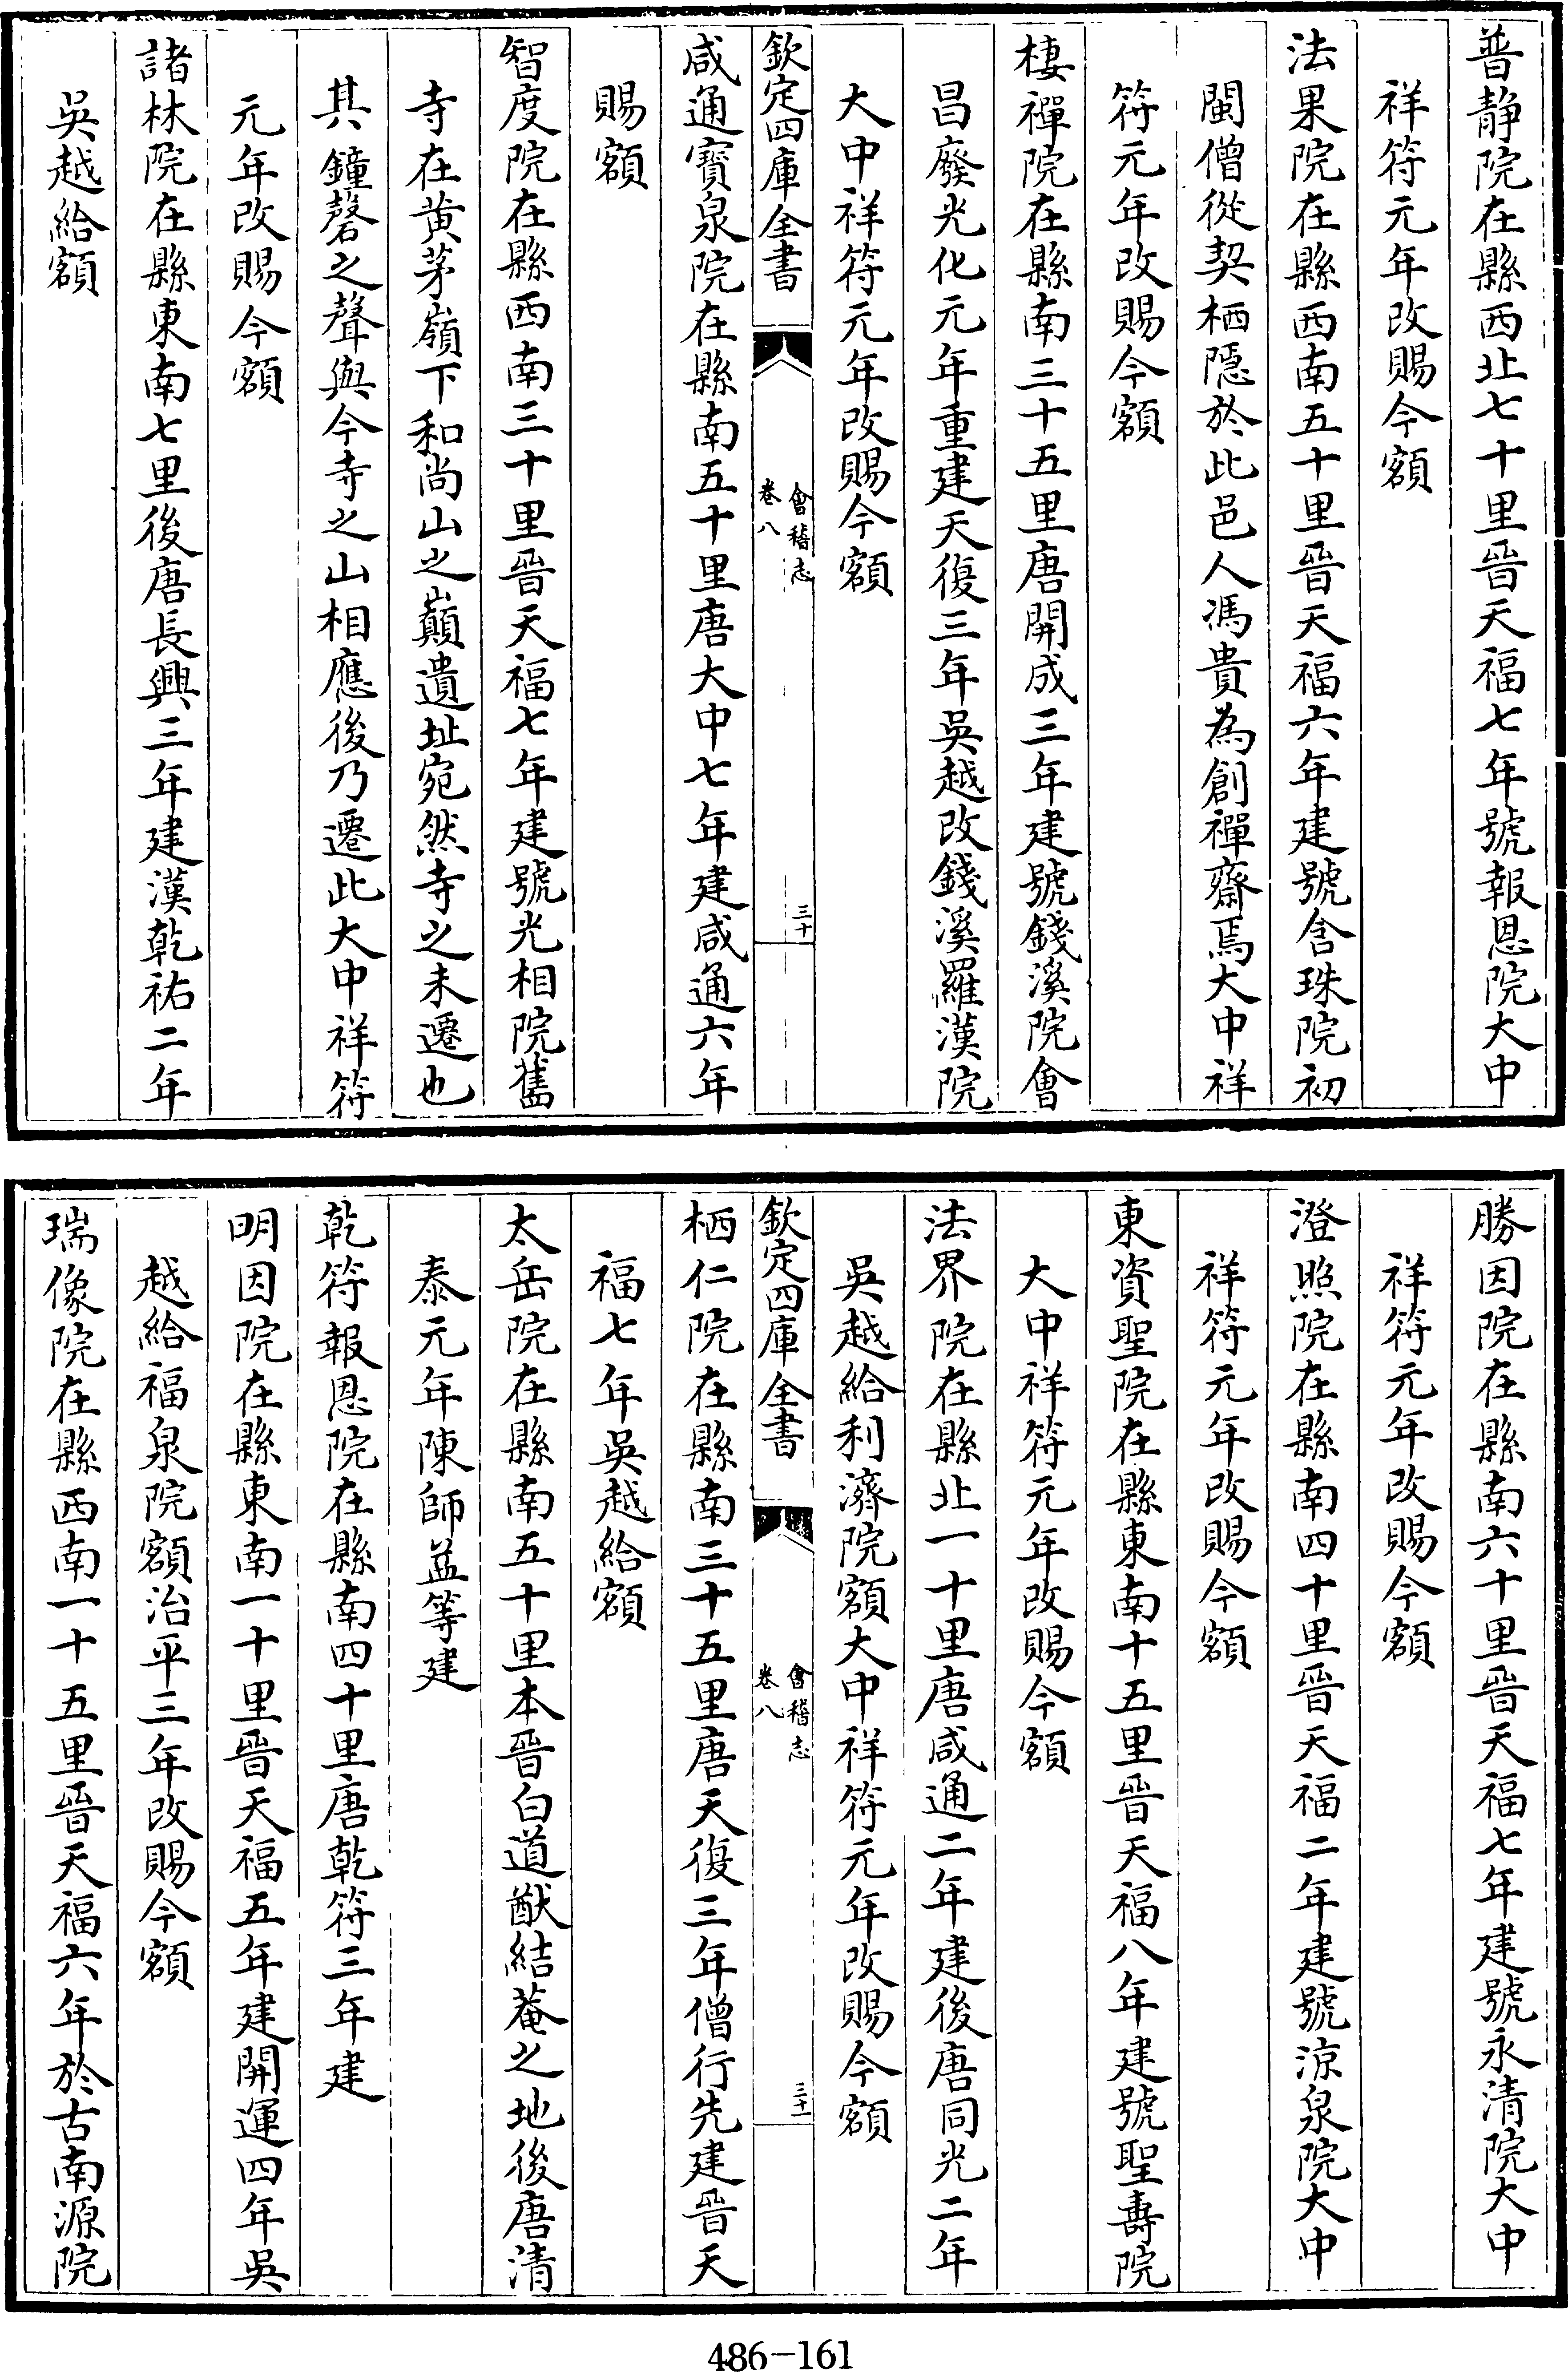 普靜院在縣西北七十里晉天福七年號報恩院大中
祥符元年改賜今額
法果院在縣西南五十里晉天福六年建號含珠院初
閩僧從契栖隱於此邑人馮貴為創禪齋焉大中祥
符元年改賜今額
棲禪院在縣南三十五里唐開成三年建號錢溪院會
昌廢光化元年重建天復三年吳越改錢溪羅漢院
大中祥符元年改賜今額
欽定四庫全書
會稽志
卷八
三十
咸通寶泉院在縣南五十里唐大中七年建咸通六年
賜額
智度院在縣西南三十里晉天福七年建號光相院舊
寺在黄茅嶺下和尚山之巔遺址宛然寺之未遷也
其鐘磬之聲與今寺之山相應後乃遷此大中祥符
元年改賜今額
諸林院在縣東南七里後唐長興三年建漢乾祐二年
吳越給額
勝因院在縣南六十里晉天福七年建號永清院大中
祥符元年改賜今額
澄照院在縣南四十里晉天福二年建號涼泉院大中
祥符元年改賜今額
東資聖院在縣東南十五里晉天福八年建號聖壽院
大中祥符元年改賜今額
法界院在縣北一十里唐咸通二年建後唐同光二年
吳越給利濟院額大中祥符元年改賜今額
欽定四庫全書
會稽志
卷八
三十一
栖仁院在縣南三十五里唐天復三年僧行先建晉天
福七年吳越給額
太岳院在縣南五十里本晉白道猷結菴之地後唐清
泰元年陳師益等建
乾符報恩院在縣南四十里唐乾符三年建
明因院在縣東南一十里晉天福五年建開運四年吳
越給福泉院額治平三年改賜今額
瑞像院在縣西南一十五里晉天福六年於古南源院
486-161